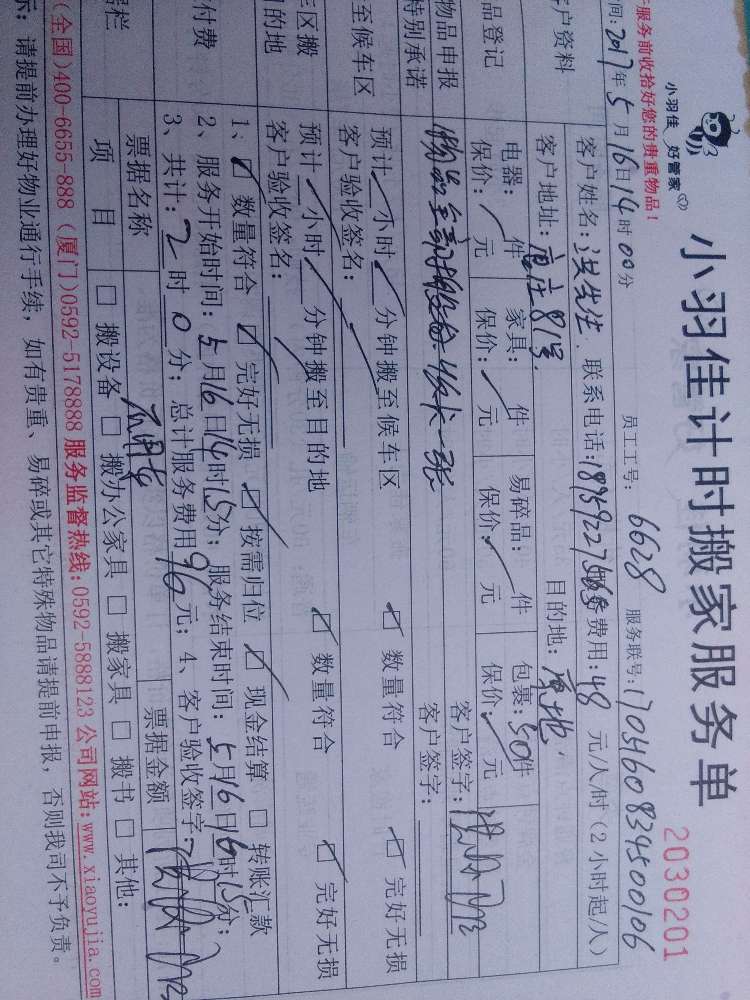 小羽佳 好管家
小羽佳计时搬家服务单
2030201
服务前收拾好您的贵重物品!
员工工号: 6628 服务联号: 1703460834500106
间: 2017年5月16日14时00分
户资料
客户姓名: 洪先生 联系电话: 费用: 48 元/人/时(2小时起/人)
客户地址: 81号 目的地: 原地
品登记
电器: 件 家具: 件 易碎品: 件 包裹: 50件
保价: 元 保价: 元 保价: 元 保价: 元
物品申报
物品全部 一张 客户签字:
特别承诺
客户签字:
至候车区
预计 小时 分钟搬至候车区 数量符合 完好无损
客户验收签名:
区搬
目的地
预计 小时 分钟搬至目的地 数量符合 完好无损
客户验收签名:
付费
1、 数量符合 完好无损 按需归位 现金结算 □ 转账汇款
2、服务开始时间: 5月16日14时15分; 服务结束时间: 5月16日16时15分;
3、共计: 2时0分; 总计服务费用 96元; 4、客户验收签字:
票据名称 票据金额
栏
项目 □ 搬设备 □ 搬办公家具 □ 搬家具 □ 搬书 □ 其他:
(全国)400-6655-888 (厦门)0592-5178888 服务监督热线: 0592-5888123 公司网站: www.xiaoyujia.com
示: 请提前办理好物业通行手续, 如有贵重、易碎或其它特殊物品请提前申报, 否则我司不予负责。